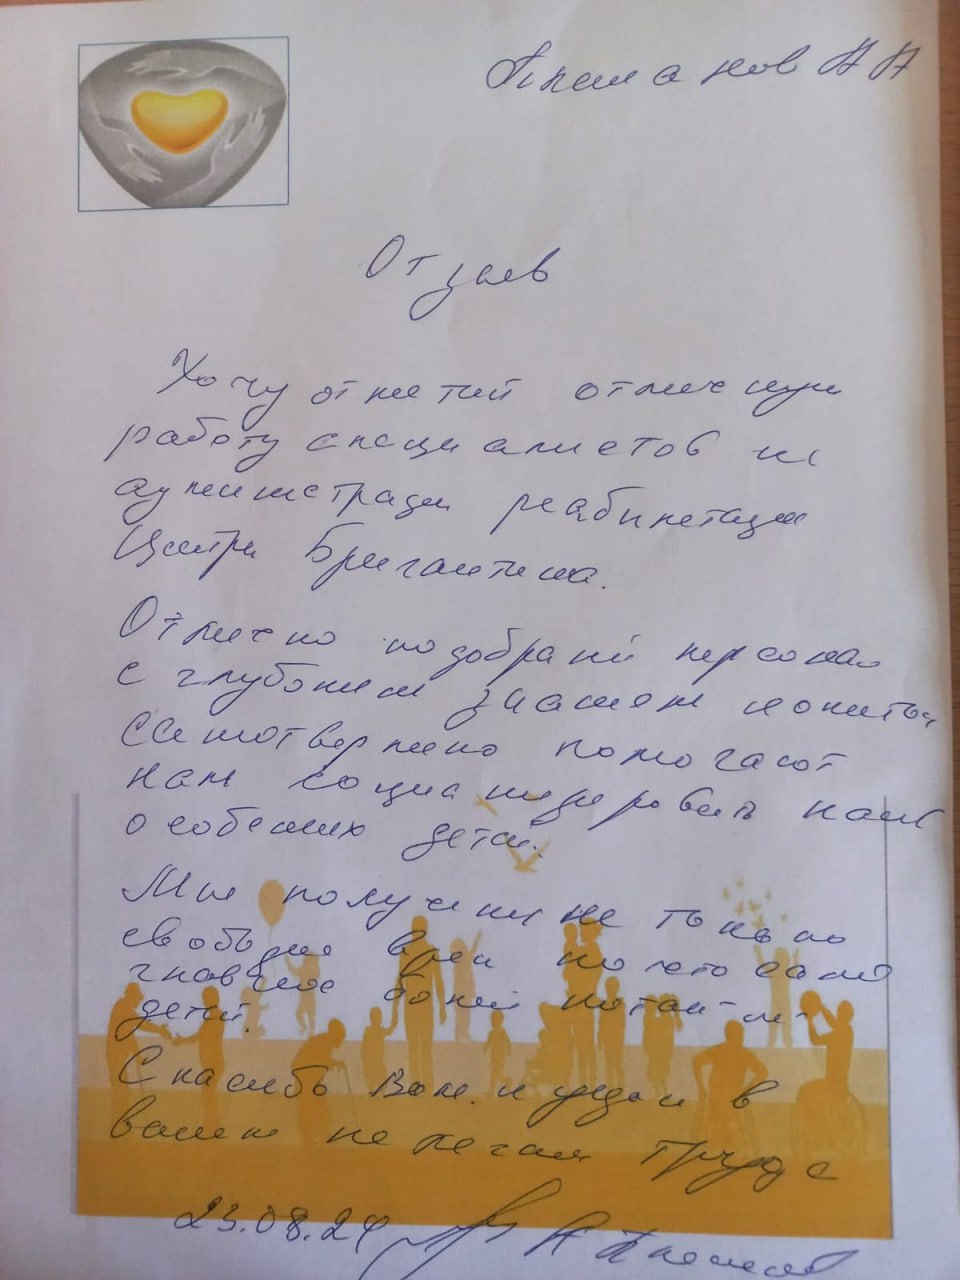 Отзыв
Хочу отметить отличную
работу специалистов и
администрации реабилитации
Центра Бригантина.
Отлично подобраный персонал
с глубокими знаниями и опытом
самоотвержено помогают
нам социализировать наших
особенных детей.
Мы получили не только
свободное время но что самое
главное более
детей.
Спасибо Вам и удачи в
вашем не легком труде
23.08.24